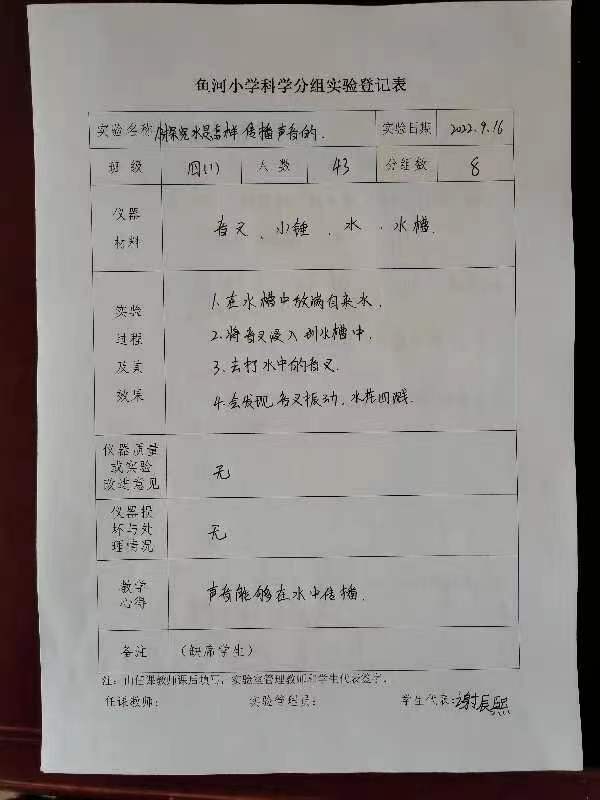 鱼河小学科学分组实验登记表
实验名称 探究水是怎样传播声音的. 实验日期 2022.9.16
班级 四(1) 人数 43 分组数 8
仪器材料 音叉、小锤、水、水槽.
实验过程及其效果
1.在水槽中放满自来水.
2.将音叉浸入到水槽中.
3.去打水中的音叉.
4.会发现,音叉振动,水花四溅.
仪器质量或实验改进意见 无
仪器损坏与处理情况 无
教学心得 声音能够在水中传播.
备注 (缺席学生)
注:由任课教师课后填写,实验室管理教师和学生代表签字.
任课教师: 实验管理员: 学生代表:谢辰熙